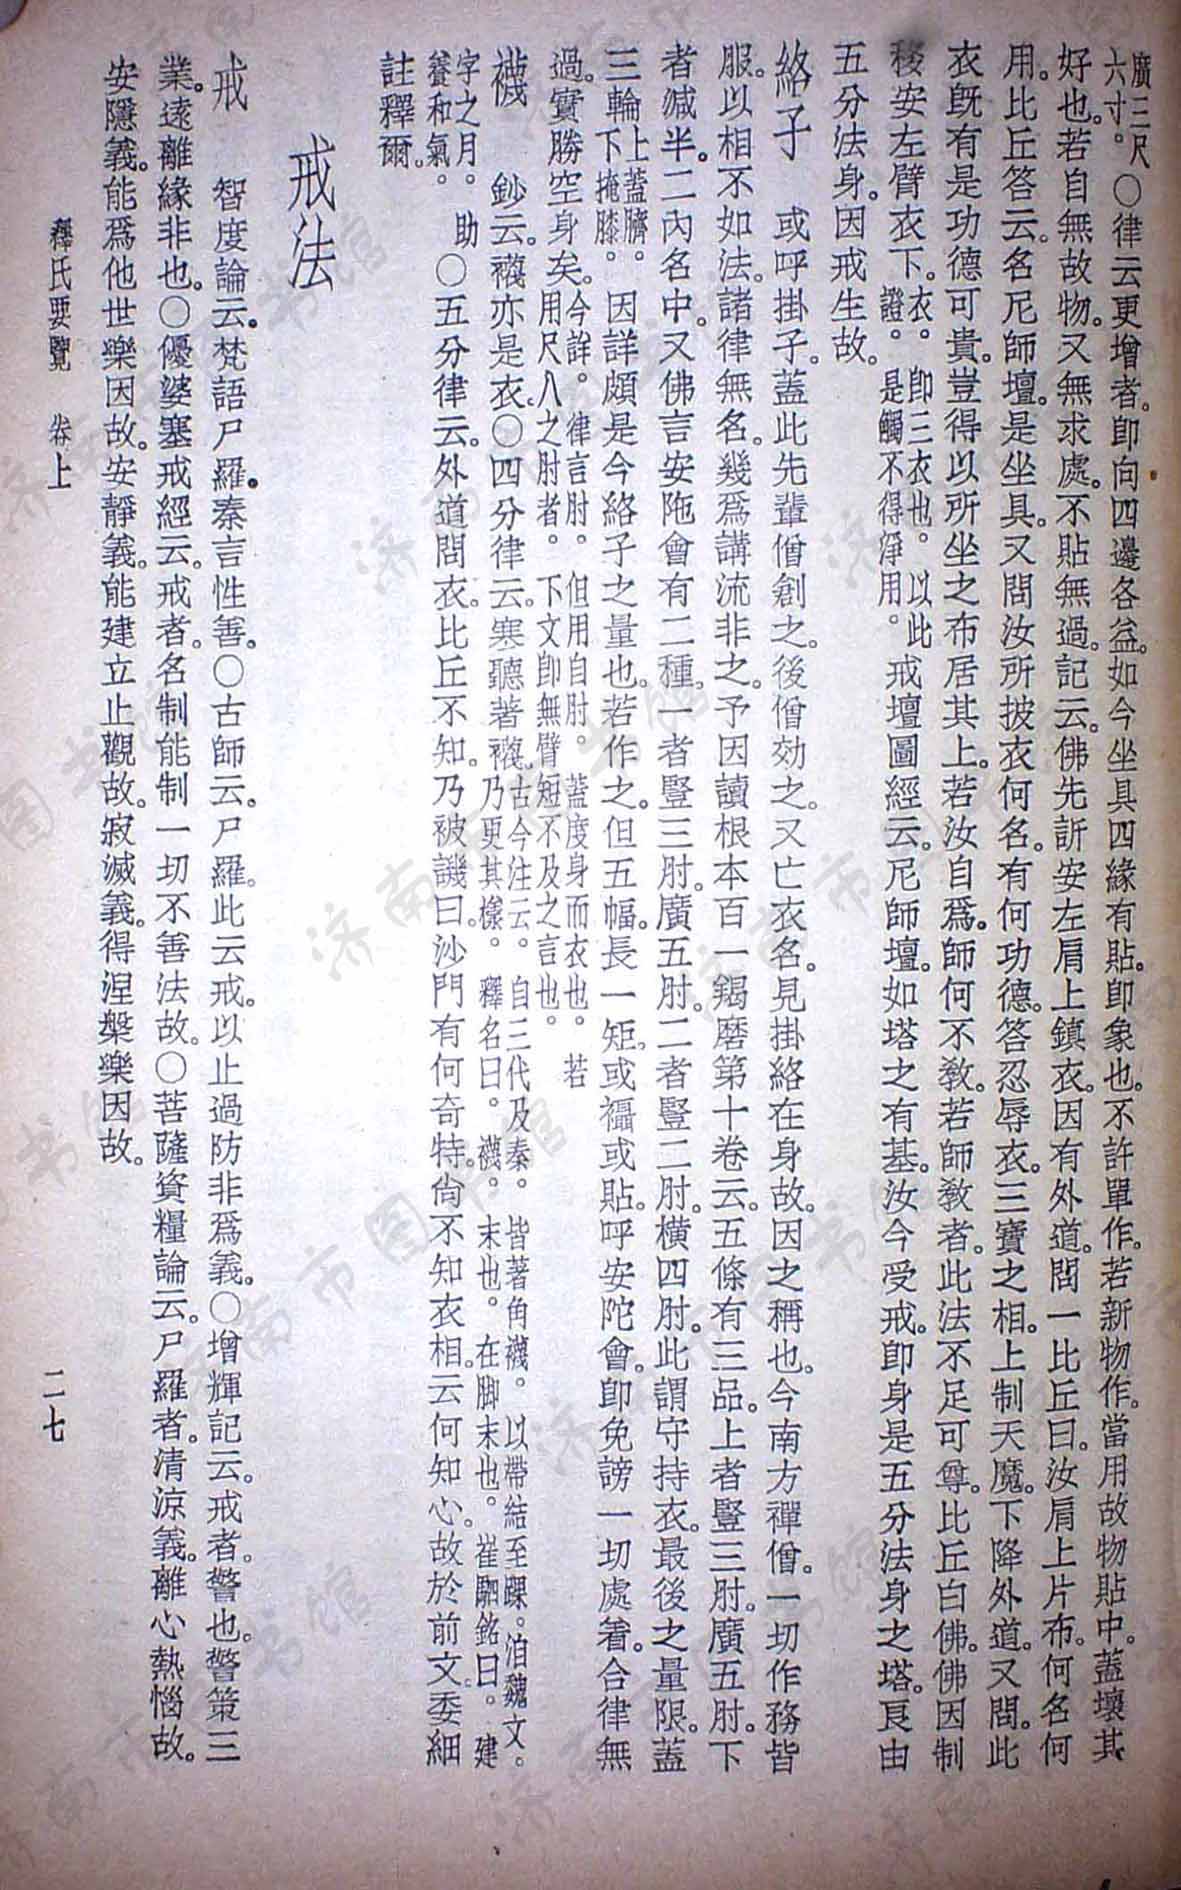 廣三尺六寸。〇律云更增者。卽向四邊各益。如今坐具四緣有貼。卽象也。不許單作。若新物作。當用故物貼中。蓋壞其
好也。若自無故物。又無求處。不貼無過。記云。佛先訢安左肩上鎮衣。因有外道。問一比丘曰。汝肩上片布。何名何
用。比丘答云。名尼師壇。是坐具。又問汝所披衣何名。有何功德。答忍辱衣。三寶之相。上制天魔。下降外道。又問。此
衣旣有是功德可貴。豈得以所坐之布居其上。若汝自爲。師何不敎。若師敎者。此法不足可尊。比丘白佛。佛因制
移安左臂衣下。衣。卽三衣也。以此證。是觸不得淨用。戒壇圖經云。尼師壇。如塔之有基。汝今受戒。卽身是五分法身之塔。良由
五分法身。因戒生故。
絡子 或呼掛子。蓋此先輩僧創之。後僧効之。又亡衣名。見掛絡在身故。因之稱也。今南方禪僧。一切作務皆
服。以相不如法。諸律無名。幾爲講流非之。予因讀根本百一羯磨第十卷云。五條有三品。上者豎三肘。廣五肘。下
者減半。二內名中。又佛言安陁會有二種。一者豎三肘。廣五肘。二者豎二肘。橫四肘。此謂守持衣。最後之量限。蓋
三輪上蓋臍。下掩膝。因詳頗是今絡子之量也。若作之。但五幅。長一矩。或襵或貼。呼安陀會。卽免謗一切處着。合律無
過。實勝空身矣。今詳。律言肘。但用自肘。蓋度身而衣也。若用尺八之肘者。下文卽無臂短不及之言也。
襪 鈔云。襪亦是衣。〇四分律云。寒聽著襪。古今注云。自三代及秦。皆著角襪。以帶結至踝。洎魏文。乃更其樣。釋名曰。襪。末也。在脚末也。崔駰銘曰。建
字之月。助養和氣。〇五分律云。外道問衣。比丘不知。乃被譏曰。沙門有何奇特。尙不知衣相。云何知心。故於前文委細
註釋爾。
戒法
戒 智度論云。梵語尸羅。秦言性善。〇古師云。尸羅。此云戒。以止過防非爲義。〇增輝記云。戒者。警也。警策三
業。遠離緣非也。〇優婆塞戒經云。戒者。名制能制一切不善法故。〇菩薩資糧論云。尸羅者。清涼義。離心熱惱故。
安隱義。能爲他世樂因故。安靜義。能建立止觀故。寂滅義。得涅槃樂因故。
釋氏要覽 卷上
二七